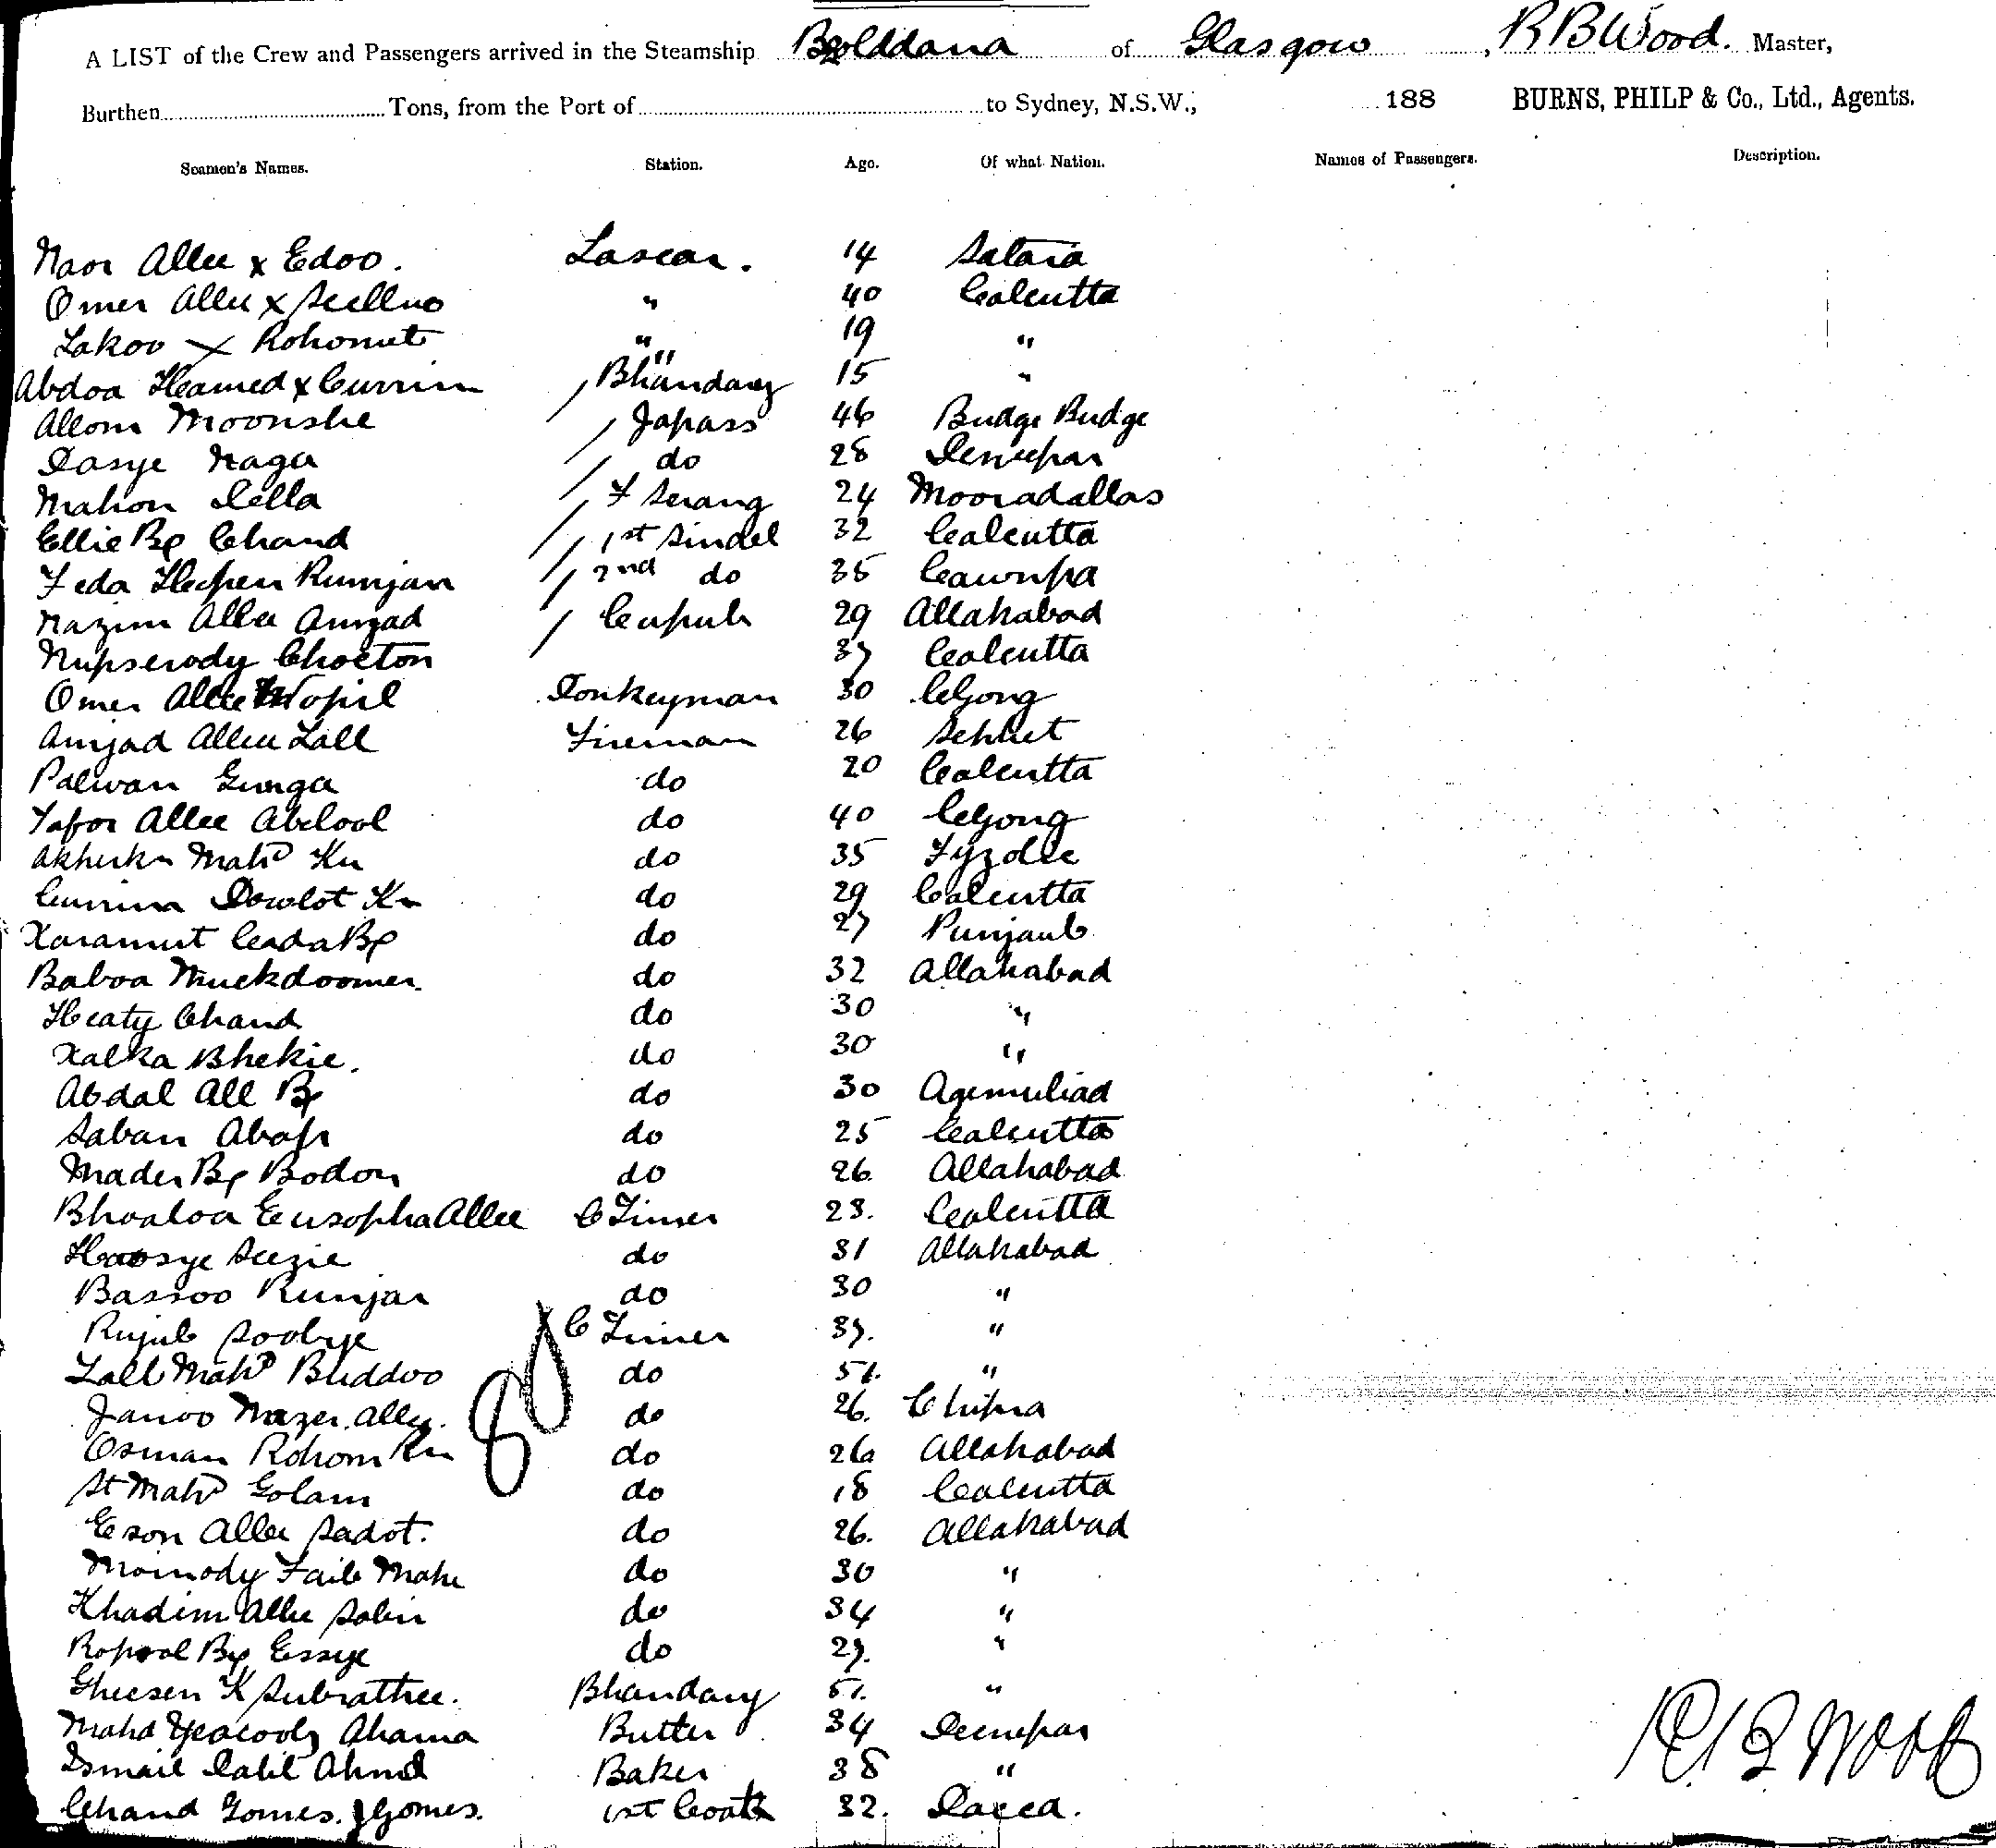 A LIST of the Crew and Passengers arrived in the Steamship Bolddana of Glasgow, R B Wood. Master,
Burthen Tons, from the Port of to Sydney, N.S.W., 188 BURNS, PHILP & Co., Ltd., Agents.
Seamen's Names. Station. Age. Of what Nation. Names of Passengers. Description.
Noor Allee x Edoo. Lascar. 14 Sataia
Omer Allee x " 40 Calcutta
Lakoo x Rohomut " 19 "
Abdoa Hamed x Currim " Bhandary 15 "
Allom Moonshe Japass 46 Budge Budge
Dasye Naga do 28
Mahon Della F Serang 24 Mooradallas
Ellie Bx Chand 1st Tindel 32 Calcutta
Feda Hepen Rumjan 2nd do 35 Cawnpa
Nazim Allee Amzad 29 Allahabad
Nupserody Choeton 37 Calcutta
Omer Allee Donkeyman 30 CGong
Amjad Allee Lall Fireman 26 Sehhet
Palwan Gunga do 20 Calcutta
Yafor Allee Abdool do 40 CGong
Mahd Kn do 35 Fyzolle
Currim Dowlot Kn do 29 Calcutta
Karamut Bx do 27 Punjaub
Baboa Muckdoomer. do 32 Allahabad
Heaty Chand do 30 "
Kalka Bhekie. do 30 "
Abdal All Bx do 30 Agemuliad
Saban Abass do 25 Calcutta
Mader Bx Bodon do 26. Allahabad
Bhoaloa Eusopha Allee C Timer 28. Calcutta
Hoosye Seezie do 31 Allahabad
Bassoo Runjan do 30 "
Rujub Soobye C Timer 37. "
Lall Mahd Buddoo do 51. "
Janoo Nazer Ally. do 26. Chupra
Osman Rohom Kn do 26 Allahabad
St Mahd Golam do 18 Calcutta
Eson Allee Sadot. do 26. Allahabad
Moinody Faib Mahe do 30 "
Khadim Allee Sabir do 34 "
Bx Essye do 27. "
Gheesen K Subrathee. Bhandary 51. "
Mahd Yeacoob Ahama Butler 34
Ismail Dalil Ahmd Baker 38 "
Chand Gomes. J Gomes. 1st Cook 32. Dacca.
R B Wood